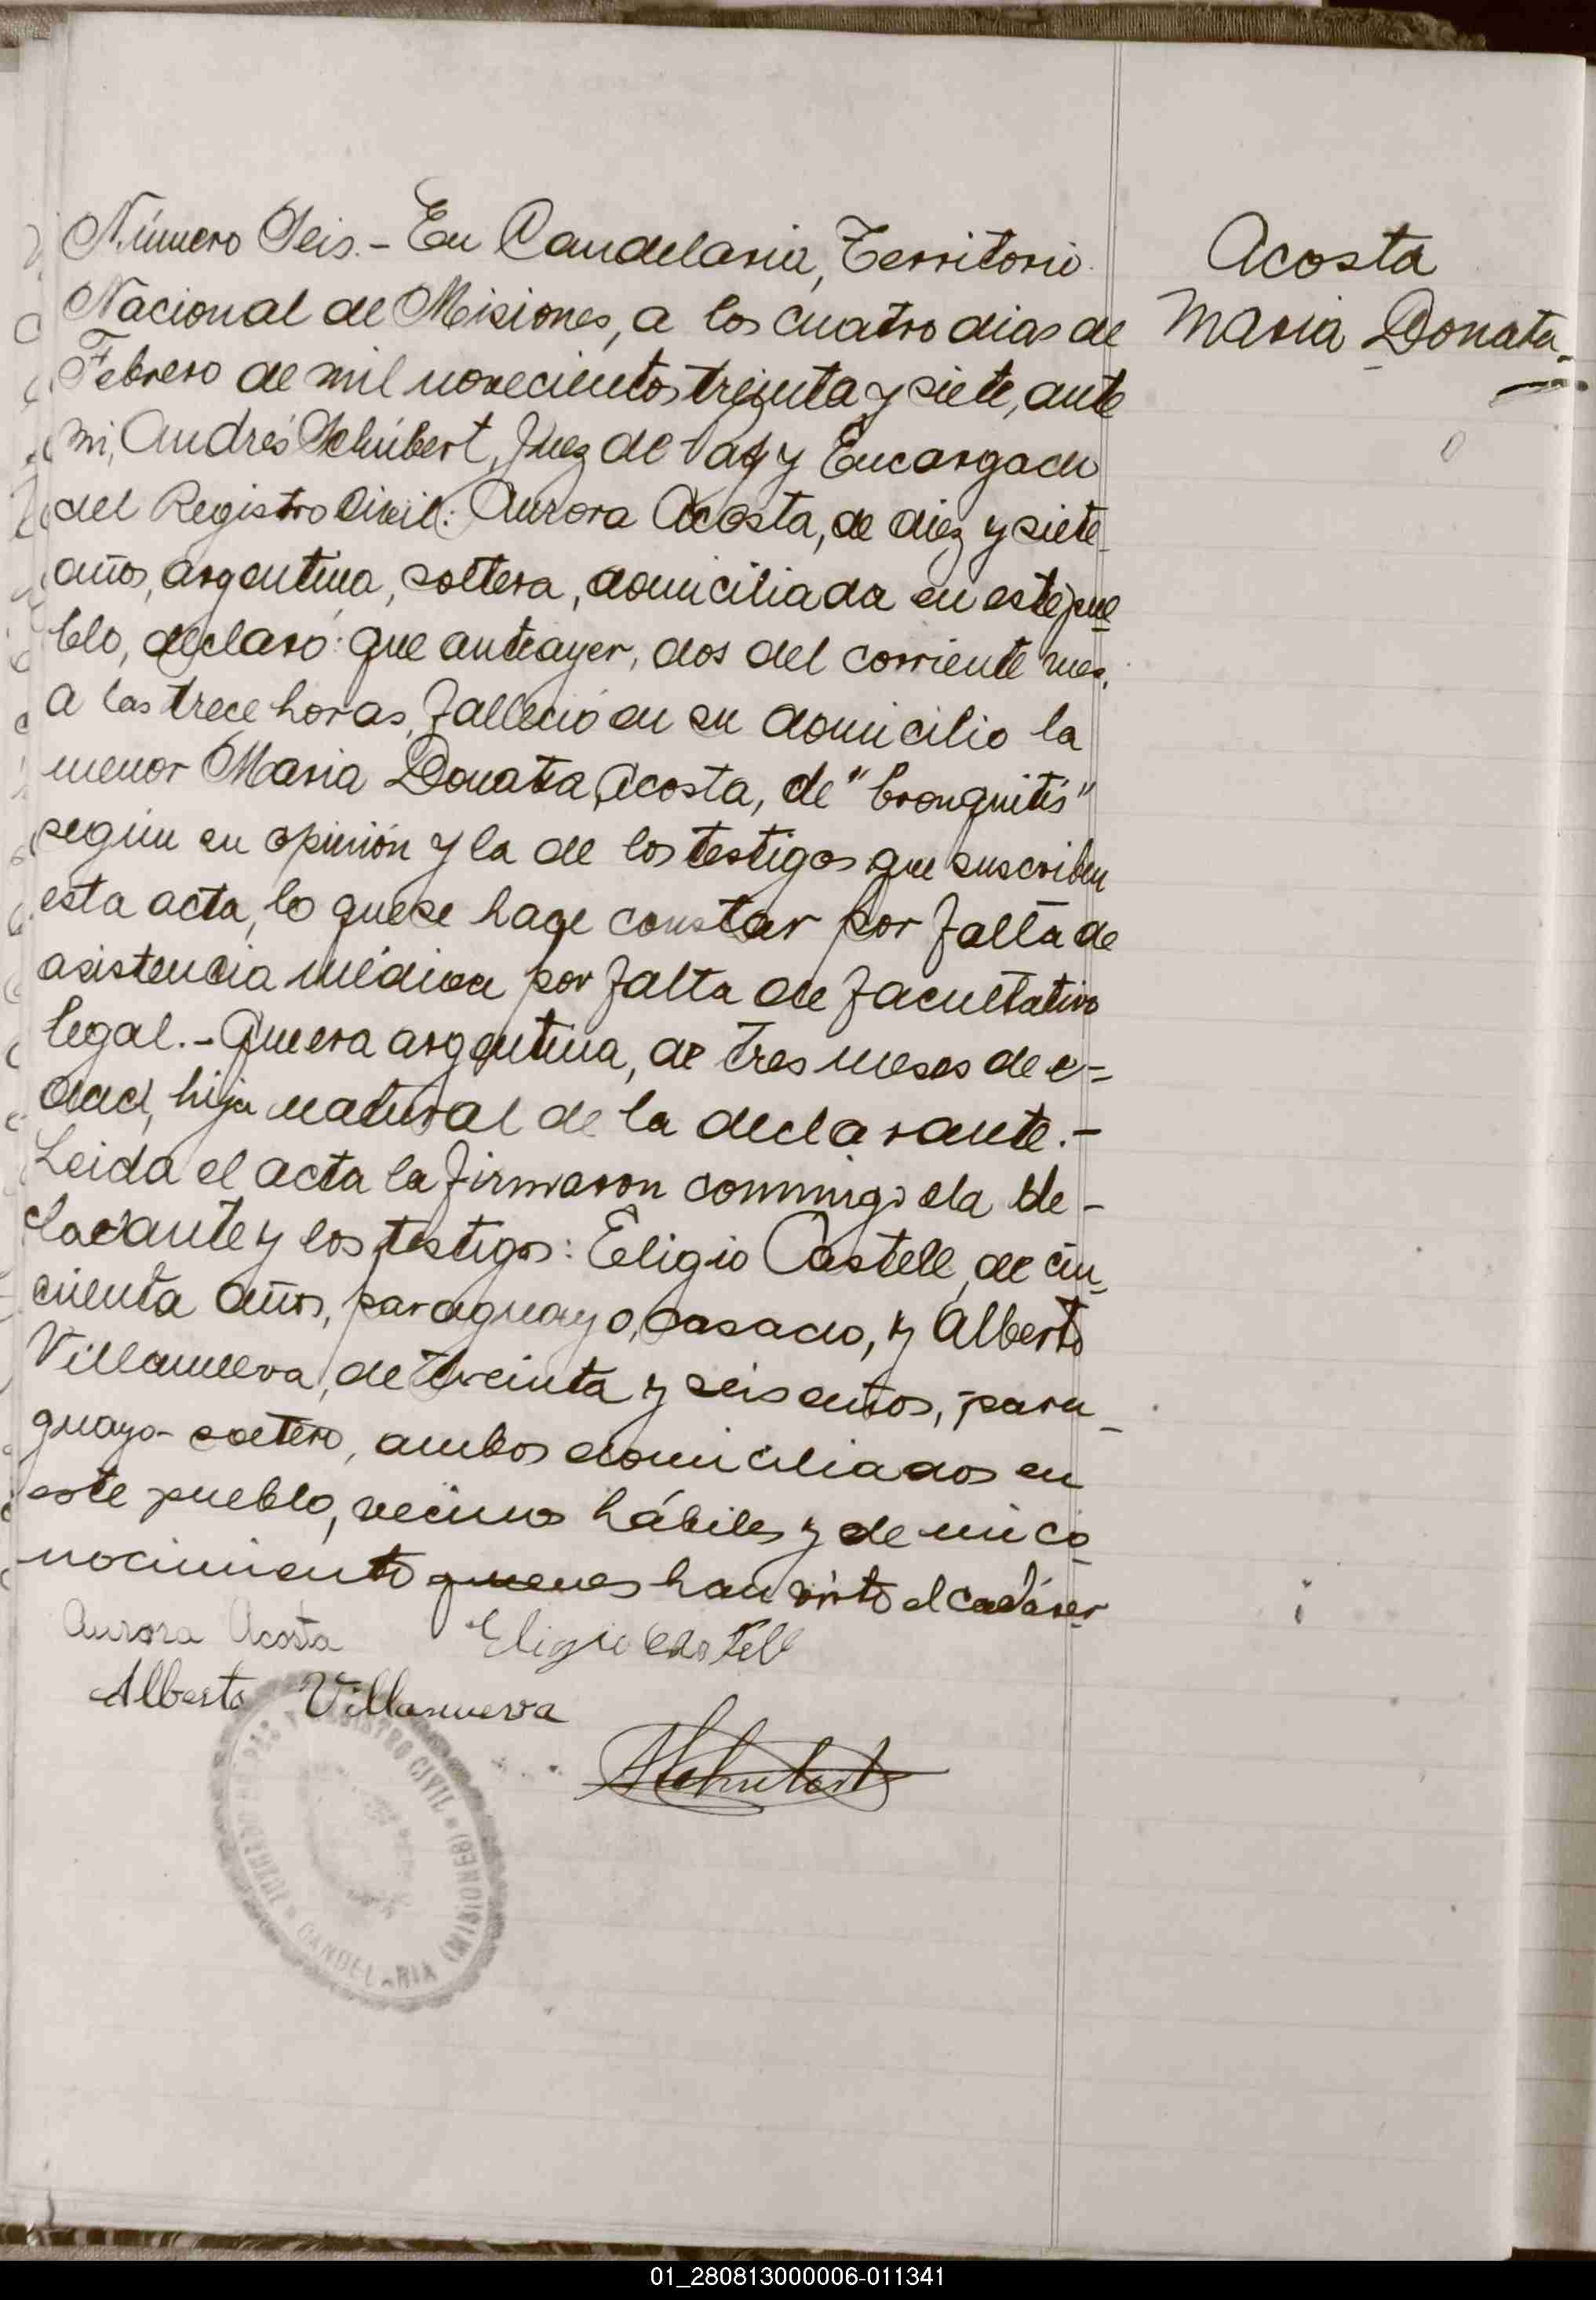 Número Seis.- En Candelaria, Territorio
Nacional de Misiones, a los cuatro dias de
Febrero de mil novecientos treinta y siete, ante
mi, Andrés Schubert, Juez de Paz y Encargado
del Registro Civil: Aurora Acosta, de diez y siete
años, argentina, soltera, domiciliada en este pue
blo, declaró: que anteayer, dos del corriente mes,
a las trece horas, falleció en su domicilio la
menor Maria Donata Acosta, de "bronquitis"
según su opinión y la de los testigos que suscriben
esta acta, lo que se hace constar por falta de
asistencia médica por falta de facultativo
legal.- Que era argentina, de tres meses de e=
dad, hija natural de la declarante.-
Leida el acta la firmaron conmigo la de-
clarante y los testigos: Eligio Castell, de cin
cuenta años, paraguayo, casado, y Alberto
Villanueva, de treinta y seis años, para-
guayo- soltero, ambos domiciliados en
este pueblo, vecinos hábiles y de mi co
nocimiento quienes han visto el cadáver
Acosta
Maria Donata.
Aurora Acosta Eligio Castell
Alberto Villanueva
ASchubert
JUZGADO DE PAZ Y REGISTRO CIVIL
CANDELARIA (MISIONES)
01_280813000006-011341